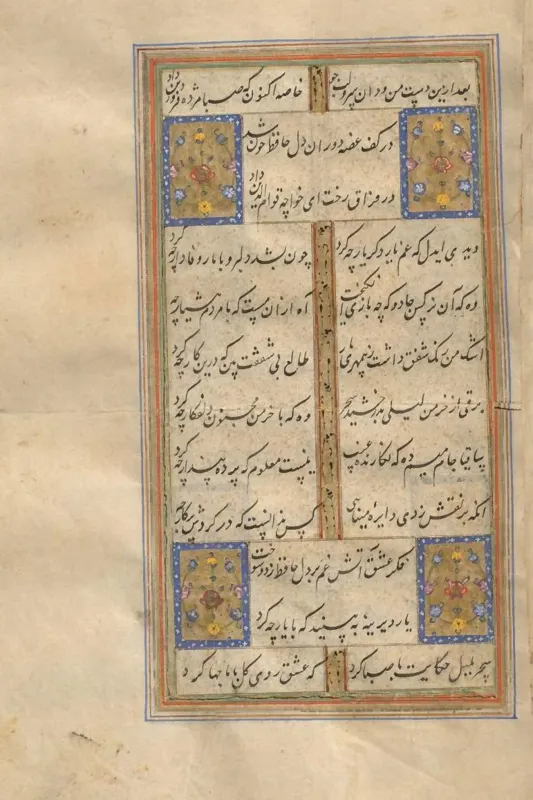 بعد ازین دست من و دامن سرو لب جو خاصه اکنون که صبا مژده فروردین داد
در کف غصه دوران دل حافظ خون شد
در فراق رخت ای خواجه قوام الدین داد
دیدی ایدل که غم یار دکر بار چه کرد چون بشد دلبر و با یار وفادار چه کرد
وه که آن نرکس جادو که چه بازی انکیخت آه ازان مست که با مردم هشیار چه کرد
اشک من رنک شفق داشت ز بیمهری یار طالع بی شفقت بین که درین کار چه کرد
برقی از خرمن لیلی بدرخشید سحر وه که با خرمن مجنون دل افکار چه کرد
ساقیا جام میم ده که نکارنده غیب نیست معلوم که در پرده پندار چه کرد
انکه بر نقش زدی دایره مینایی کس ندانست که در کردش پرکار چه کرد
فکر عشق آتش غم بر دل حافظ زد و سوخت
یار دیرینه به بینید که با یار چه کرد
سحر بلبل حکایت با صبا کرد که عشق روی کل با ما جها کرد